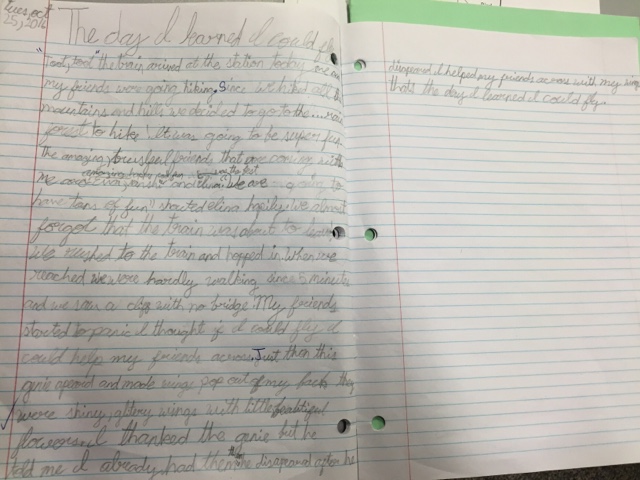 Tues, Oct
25, 2016
The day I learned I could fly
"Toot, toot" the train arrived at the station today me and
my friends were going hiking. Since we hiked all the
mountains and hills we decided to go to the.... rain
forest to hike. It was going to be super fun
the amazing, friends that are coming with
me are and elina "We are going to
have tons of fun" shouted elina happily. We almost
forgot that the train was about to leave
We rushed to the train and hopped in. When we
reached we were hardly walking since 5 minutes
and we saw a cliff with no bridge. My friends
started to panic I thought if I could fly I
could help my friends across. Just then this
genie opeared and made wings pop out of my back they
were shiny, glittery wings with little beautiful
flowers. I thanked the genie but he
told me I already had them disapeared after he
disapeared I helped my friends across with my wings
thats the day I learned I could fly.